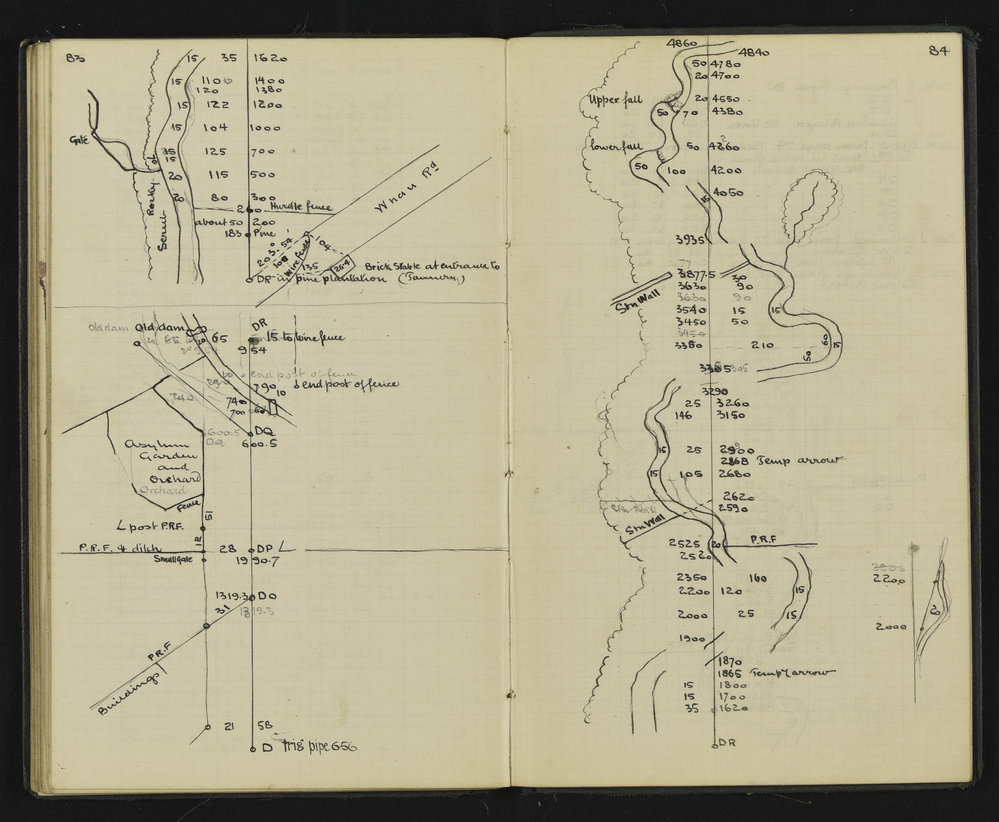 83
15 35 1620
15 1100 1400
120 1380
15 122 1200
15 104 1000
Gate
35 15 125 700
20 115 500
Rocky
Scrub
80 300
200 Hurdle fence
about 50 200
183 Pine
Whau Rd
104
Wire fence
135
26.4
Brick Stable at entrance to
DR in pine plantation (Tannery)
Old dam Old dam
20 65
DR
15 to wire fence
9 54
end post of fence
790 10 end post of fence
740 740
700 60
600.5 DQ
DQ 600.5
Asylum
Garden
and
Orchard
Orchard
Fence
15
post P.R.F.
12
P.R.F. & ditch 28 DP
Small gate 1990.7
1319.3 DO
31 1319.3
P.R.F
Buildings
21 58
D Trig pipe 656
84
4860
4840
50 4780
20 4700
Upper fall 20 4550
50 70 4380
lower fall 50 4260
50 100 4200
15 4050
3935
77
3877.5 30
Stn Wall
3630 90
3630 90
3540 15 15
3450 50
3450
3350 210 50 60 15
3305 305
3290
25 3260
146 3150
15 25 2900
2868 Temp arrow
15 105 2680
2620
Stn Wall 2590
Stn Wall
2525 20 P.R.F
2520
2350 160
2200 120 15
2000 25 15
1900
1870
1865 Tempy arrow
15 1800
15 1700
35 1620
DR
2200
20
2000